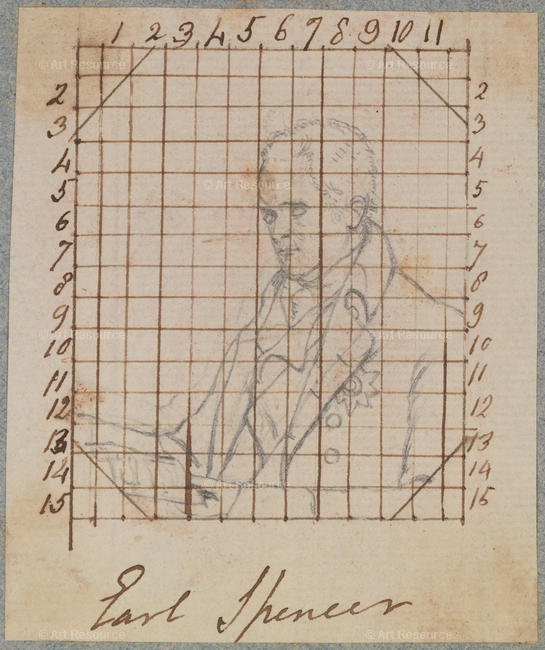 1 2 3 4 5 6 7 8 9 10 11
2 2
3 3
4 4
5 5
6 6
7 7
8 8
9 9
10 10
11 11
12 12
13 13
14 14
15 15
Earl Spencer
© Art Resource © Art Resource © Art Resource
© Art Resource
© Art Resource © Art Resource © Art Resource
© Art Resource
© Art Resource © Art Resource © Art Resource